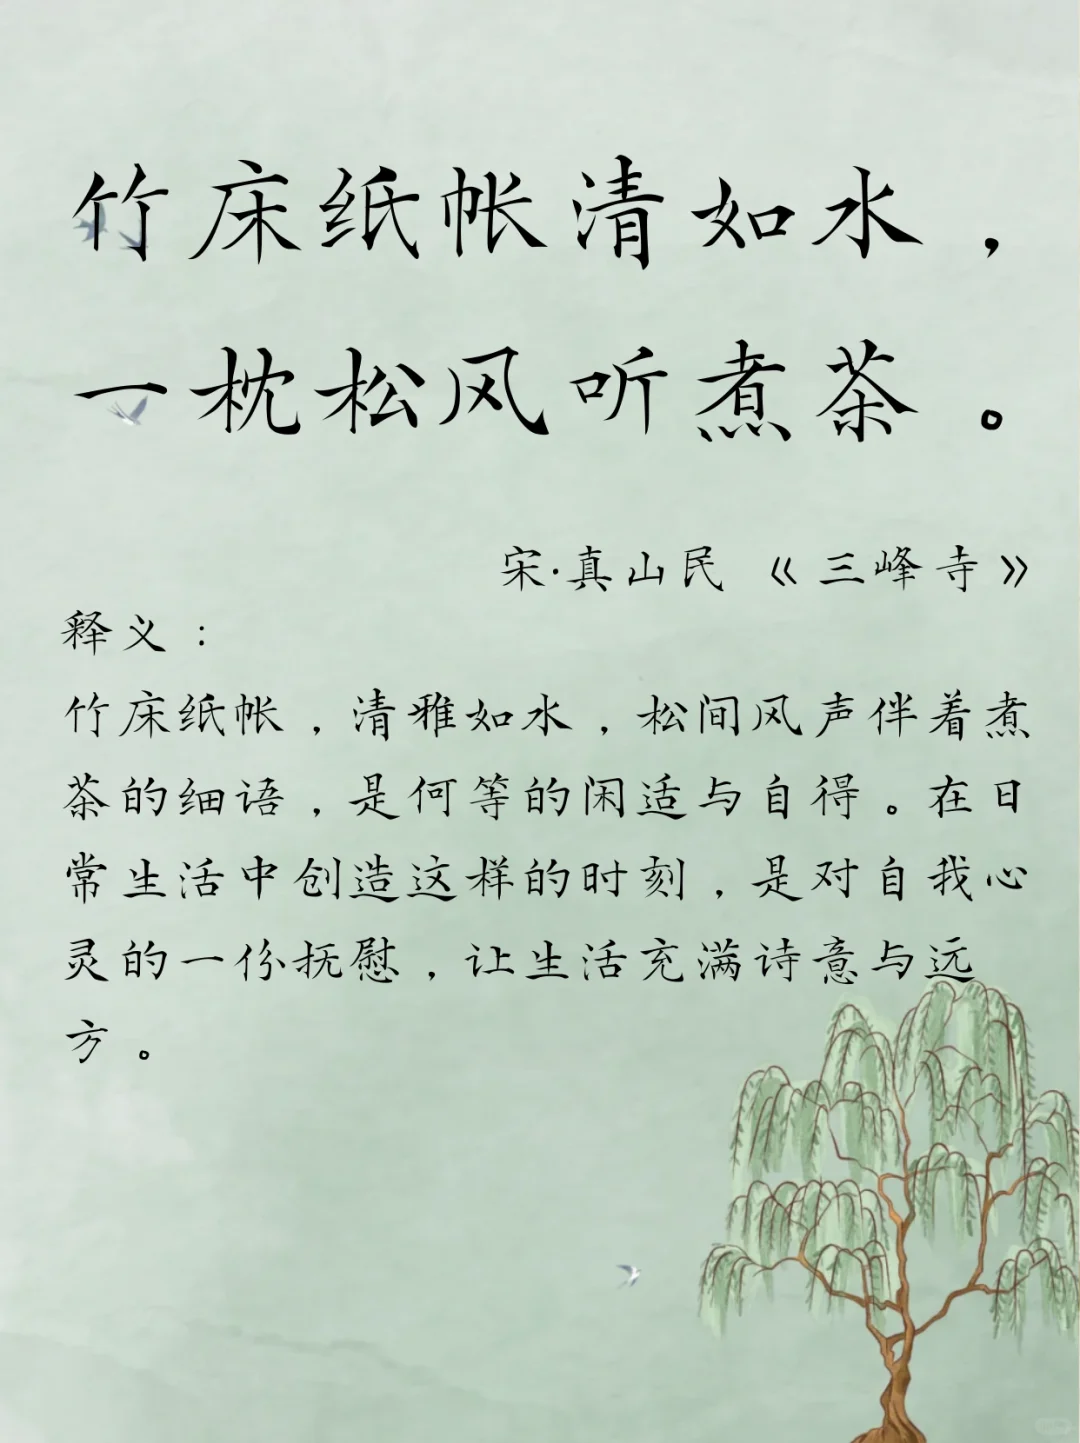 竹床纸帐清如水，
一枕松风听煮茶。
宋·真山民《三峰寺》
释义：
竹床纸帐，清雅如水，松间风声伴着煮
茶的细语，是何等的闲适与自得。在日
常生活中创造这样的时刻，是对自我心
灵的一份抚慰，让生活充满诗意与远
方。